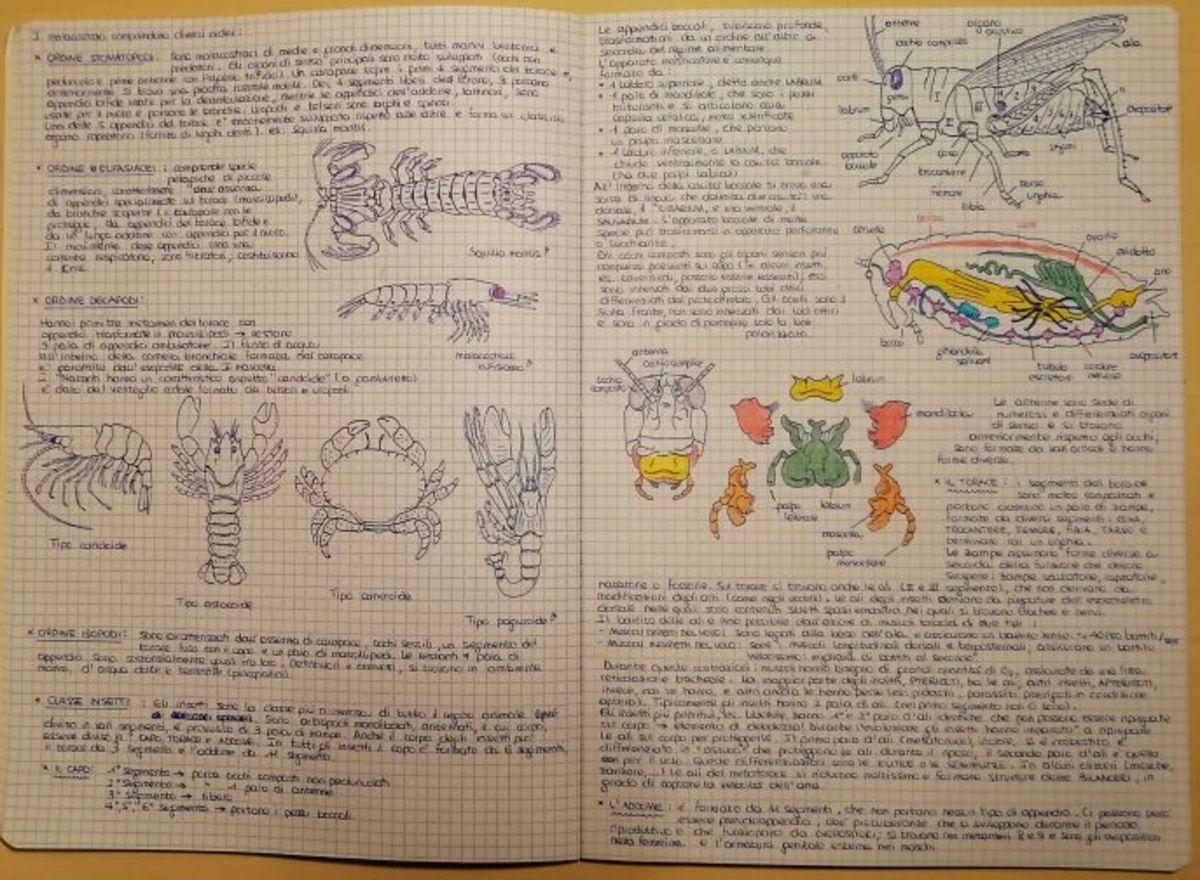 I malacostraci comprendono diversi ordini:
* ORDINE STOMATOPODI: sono malacostraci di medie e grandi dimensioni, tutti marini bentonici e
predatori. Gli organi di senso principali sono molto sviluppati (occhi con
peduncolo e prime antenne con flagello trifido). Un carapace copre i primi 4 segmenti del torace,
anteriormente si trova una piastra rostrale mobile. Dei segmenti liberi dell'torace, 3 portano
appendici bifide usate per la deambulazione, mentre le appendici dell'addome, laminari, sono
usate per il nuoto e portano le branchie. Uropodi e telson sono larghi e spinosi.
Una delle 5 appendici del torace è enormemente sviluppata rispetto alle altre e forma un classico
organo raptatorio (fornito di lunghi denti). es: Squilla mantis.
* ORDINE EUFASIACEI: comprende specie
pelagiche di piccole
dimensioni, caratterizzate dall'assenza
di appendici specializzate sul torace (massillipedi),
da branchie scoperte
da appendici del torace bifide e
da un lungo addome con appendici per il nuoto.
Il movimento delle appendici crea una
corrente respiratoria, sono filtratori; costituiscono
il Krill.
Squilla mantis
malacostraco
eufasiaceo
* ORDINE DECAPODI:
Hanno i primi tre metameri del torace con
appendici trasformate in massillipedi → restano
5 paia di appendici ambulatorie. Il flusso di acqua
all'interno della camera branchiale formata dal carapace
è garantito dall'esopodite della II mascella.
I "Natanti" hanno un caratteristico aspetto "caridoide" (o gamberetto)
è dato dal ventaglio codale formato da telson e uropodi.
Tipo caridoide
Tipo astacoide
Tipo cancroide
Tipo paguroide
* ORDINE ISOPODI: Sono caratterizzati dall'assenza di carapace, occhi sessili, un segmento del
torace fuso con il capo e un paio di massillipedi. Le restanti 7 paia di
appendici sono sostanzialmente uguali tra loro. Detritivori e onnivori, si trovano in ambiente
marino, d'acqua dolce e terrestri
* CLASSE INSETTI: Gli insetti sono la classe più numerosa di tutto il regno animale
Sono artropodi mandibolati, antennati, il cui corpo,
diviso in vari segmenti, è provvisto di 3 paia di zampe. Anche il corpo degli insetti può
essere diviso in CAPO, TORACE e ADDOME. In tutti gli insetti il capo è formato da 6 segmenti,
il torace da 3 segmenti e l'addome da 11 segmenti.
* IL CAPO: 1° segmento → porta occhi composti non peduncolati
2° segmento → " 1 paio di antenne
3° segmento → libero
4°, 5°, 6° segmento → portano i pezzi boccali.
Le appendici boccali, subiscono profonde
trasformazioni da un ordine all'altro a
seconda del regime alimentare.
L'apparato masticatore è comunque
formato da:
• 1 labbro superiore, detto anche LABRUM
• 1 paio di mandibole, che sono i pezzi
trituranti e si articolano alla
capsula cefalica, molto sclerificate
• 1 paio di mascelle, che portano
un palpo mascellare
• 1 labbro inferiore, o LABIUM, che
chiude ventralmente la cavità boccale
(ha due palpi labiali)
All'interno della cavità boccale si trova una
sorta di lingua che delimita due cavità: una
dorsale, il CIBARIUM, e una ventrale, il
SALIVARIUM. L'apparato boccale di molte
specie può trasformarsi in apparato perforante
o succhiante.
Gli occhi composti sono gli organi sensori più
complessi presenti sul capo (in alcuni insetti
es. cavernicoli, possono essere assenti); essi
sono innervati dai due grossi lobi ottici
differenziati dal protocerebro. Gli ocelli sono 3
sulla fronte, non sono innervati dai lobi ottici
e sono in grado di percepire solo la luce
polarizzata.
antenne
occhio composto
organo
acustico
ala
ocelli
gena
labrum
apparato
boccale
I
II
III
coxa
trocantere
femore
tibia
tarso
unghia
stigmi
ovopositore
cervello
aorta
cuore
ovario
ovidotto
ano
bocca
ghiandola
salivare
tubulo
escretore
cordone
nervoso
ovopositore
antenna
occhio semplice
occhio
composto
labrum
mandibola
palpo
labiale
labium
mascella
palpo
mascellare
Le antenne sono sede di
numerosi e differenziati organi
di senso e si trovano
anteriormente rispetto agli occhi;
sono formate da vari articoli e hanno
forme diverse.
* IL TORACE: i segmenti del torace
sono molto compattati e
portano ciascuno un paio di zampe,
formate da diversi segmenti: COXA,
TROCANTERE, FEMORE, TIBIA, TARSO e
terminano con un'unghia.
Le zampe assumono forme diverse a
seconda della funzione che devono
svolgere: zampe saltatorie, raptatorie,
natatorie o fossorie. Sul torace si trovano anche le ali (II e III segmento), che non derivano da
modificazioni degli arti (come negli uccelli). Le ali degli insetti derivano da piegature dell'esoscheletro
dorsale nelle quali sono contenuti stretti spazi emocelici nei quali si trovano trachee e nervi.
Il battito delle ali è reso possibile dall'azione di muscoli toracici di due tipi:
- MUSCOLI DIRETTI DEL VOLO: sono legati alla base dell'ala e assicurano un battito lento.
- MUSCOLI INDIRETTI DEL VOLO: sono i muscoli longitudinali dorsali e tergosternali; assicurano un battito
velocissimo: migliaia di battiti al secondo.
Durante queste contrazioni i muscoli hanno bisogno di grandi quantità di O₂, assicurate da una fitta
reticolazione tracheale. La maggior parte degli insetti, PTERIGOTI, ha le ali, altri insetti, APTERIGOTI,
invece, non le hanno, e altri ancora le hanno perse (es: pidocchi, parassiti
Tipicamente gli insetti hanno 2 paia di ali (nel primo segmento non ci sono).
Gli insetti più primitivi, es. libellule, hanno 1° e 2° paio d'ali identiche che non possono essere ripiegate
sul corpo → elemento di debolezza! Durante l'evoluzione gli insetti hanno imparato a ripiegare
le ali sul corpo per proteggerle. Il primo paio d'ali
differenziato in "astucci" che proteggono le ali durante il riposo, il secondo paio d'ali è quello
usato per il volo. Queste differenziazioni sono le ELITRE o le SEMIELITRE. In alcuni ditteri (mosche,
zanzare,...) le ali del metatorace si riducono moltissimo e formano strutture dette BILANCIERI, in
grado di captare la velocità dell'aria.
* L'ADDOME: è formato da 11 segmenti, che non portano nessun tipo di appendice. Ci possono però
essere pseudoappendici, cioè protuberanze che si sviluppano durante il periodo
riproduttivo e che funzionano da ovopositori; si trovano nei metameri 8 e 9 e sono gli ovopositori
nella femmina e l'armatura genitale esterna nei maschi.